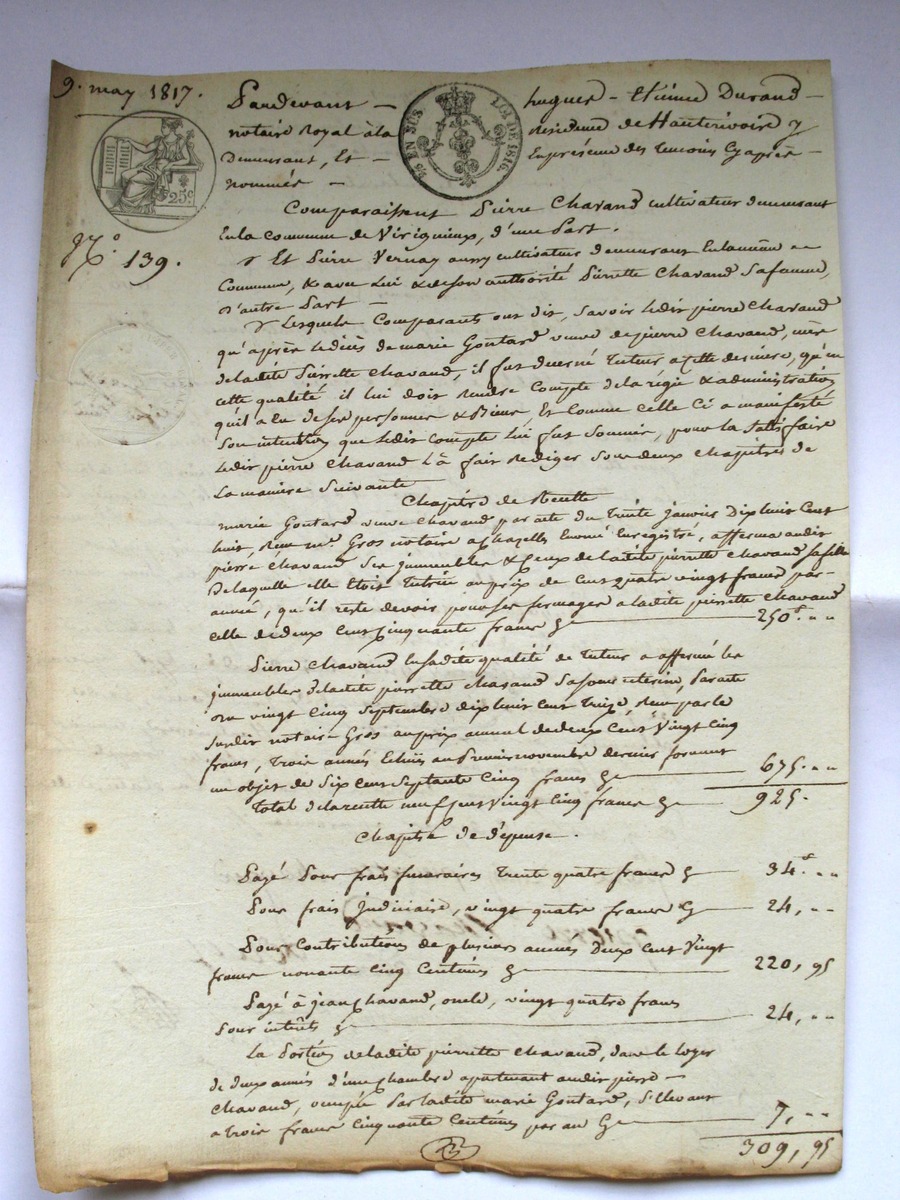 9. may 1817.
Pardevant – hugues – Etienne Durand –
notaire Royal à la Residence de Hauterivoire y
Demeurant, Et – En presence des temoins Cy après –
nommés –
1/10 EN SUS LOI DE 1816.
25c
No. 139.
Comparaissent Pierre Chavand cultivateur demeurant
En la Commune de Virigneux, d'une Part.
Et Pierre Vernay aussy cultivateur demeurant En la même
Commune, & avec lui & de son authorité Pierrette Chavand Sa femme,
D'autre Part –
Lesquels Comparants ont dit, Savoir ledit pierre Chavand
qu'après le décès de marie Goutard veuve de pierre Chavand, mère
de ladite Pierrette Chavand, il fut nommé tuteur a cette derniere, qu'en
cette qualité il lui doit Rendre Compte de la régie & administration
qu'il a Eu de ses personne & Biens Et Comme celle Ci a manifesté
Son intention que ledit Compte lui fut Soumis, pour la Satisfaire
ledit pierre Chavand l'à fait Rediger Sous deux Chapitres de
la maniere Suivante
Chapitre de Recette
marie Goutard veuve Chavand par acte du trente janvier Dix huit Cent
huit, Reçu me. Gros notaire a Chazelles Enregistré, afferma audit
pierre Chavand Ses immeubles & Ceux de ladite pierrette Chavand sa fille
de laquelle elle Etoit tutrice au prix de Cent quatre vingt francs par
année, qu'il reste devoir pour ses fermages a ladite pierrette Chavand
celle de deux Cent Cinquante francs Cy — 250f. ..
Pierre Chavand En sadite qualité de tuteur a affermé les
immeubles de ladite pierrette Chavand par acte
du vingt Cinq Septembre dix huit Cent treize, Reçu par le
Susdit notaire Gros au prix annuel de deux Cent Vingt Cinq
francs, trois années Echues au Premier novembre dernier formant
un objet de Six cent Septante Cinq francs Cy — 675. ..
Total de la recette neuf Cent Vingt Cinq francs Cy — 925.
Chapitre de dépense.
Payé Pour frais funeraires trente quatre francs Cy — 34f. ..
Pour frais judiciaire, vingt quatre francs Cy — 24, ..
Pour Contributions de plusieurs années Deux Cent Vingt
francs nonante Cinq Centimes Cy — 220, 95
Payé à jean Chavand, oncle, vingt quatre francs
Pour intérêts Cy — 24, ..
La Portion de ladite pierrette Chavand, dans le loyer
de deux années d'une chambre apartenant audit pierre –
Chavand, occupée Par ladite marie Goutard, S'élevant
a trois francs Cinquante Centimes par an Cy — 7, ..
309, 95